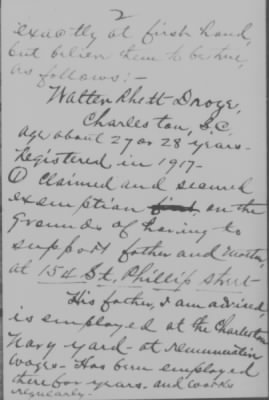 2
exactly at first hand,
but believe them to be true,
as follows:-
Walter Rhett Droze,
Charleston, S.C.
age about 27 or 28 years-
Registered in 1917-
① Claimed and secured
exemption on the
grounds of having to
support father and mother,
at 154 St. Phillip street-
His father, I am advised,
is employed at the Charleston
Navy yard - at remunerative
wages - Has been employed
there for years - and works
regularly -